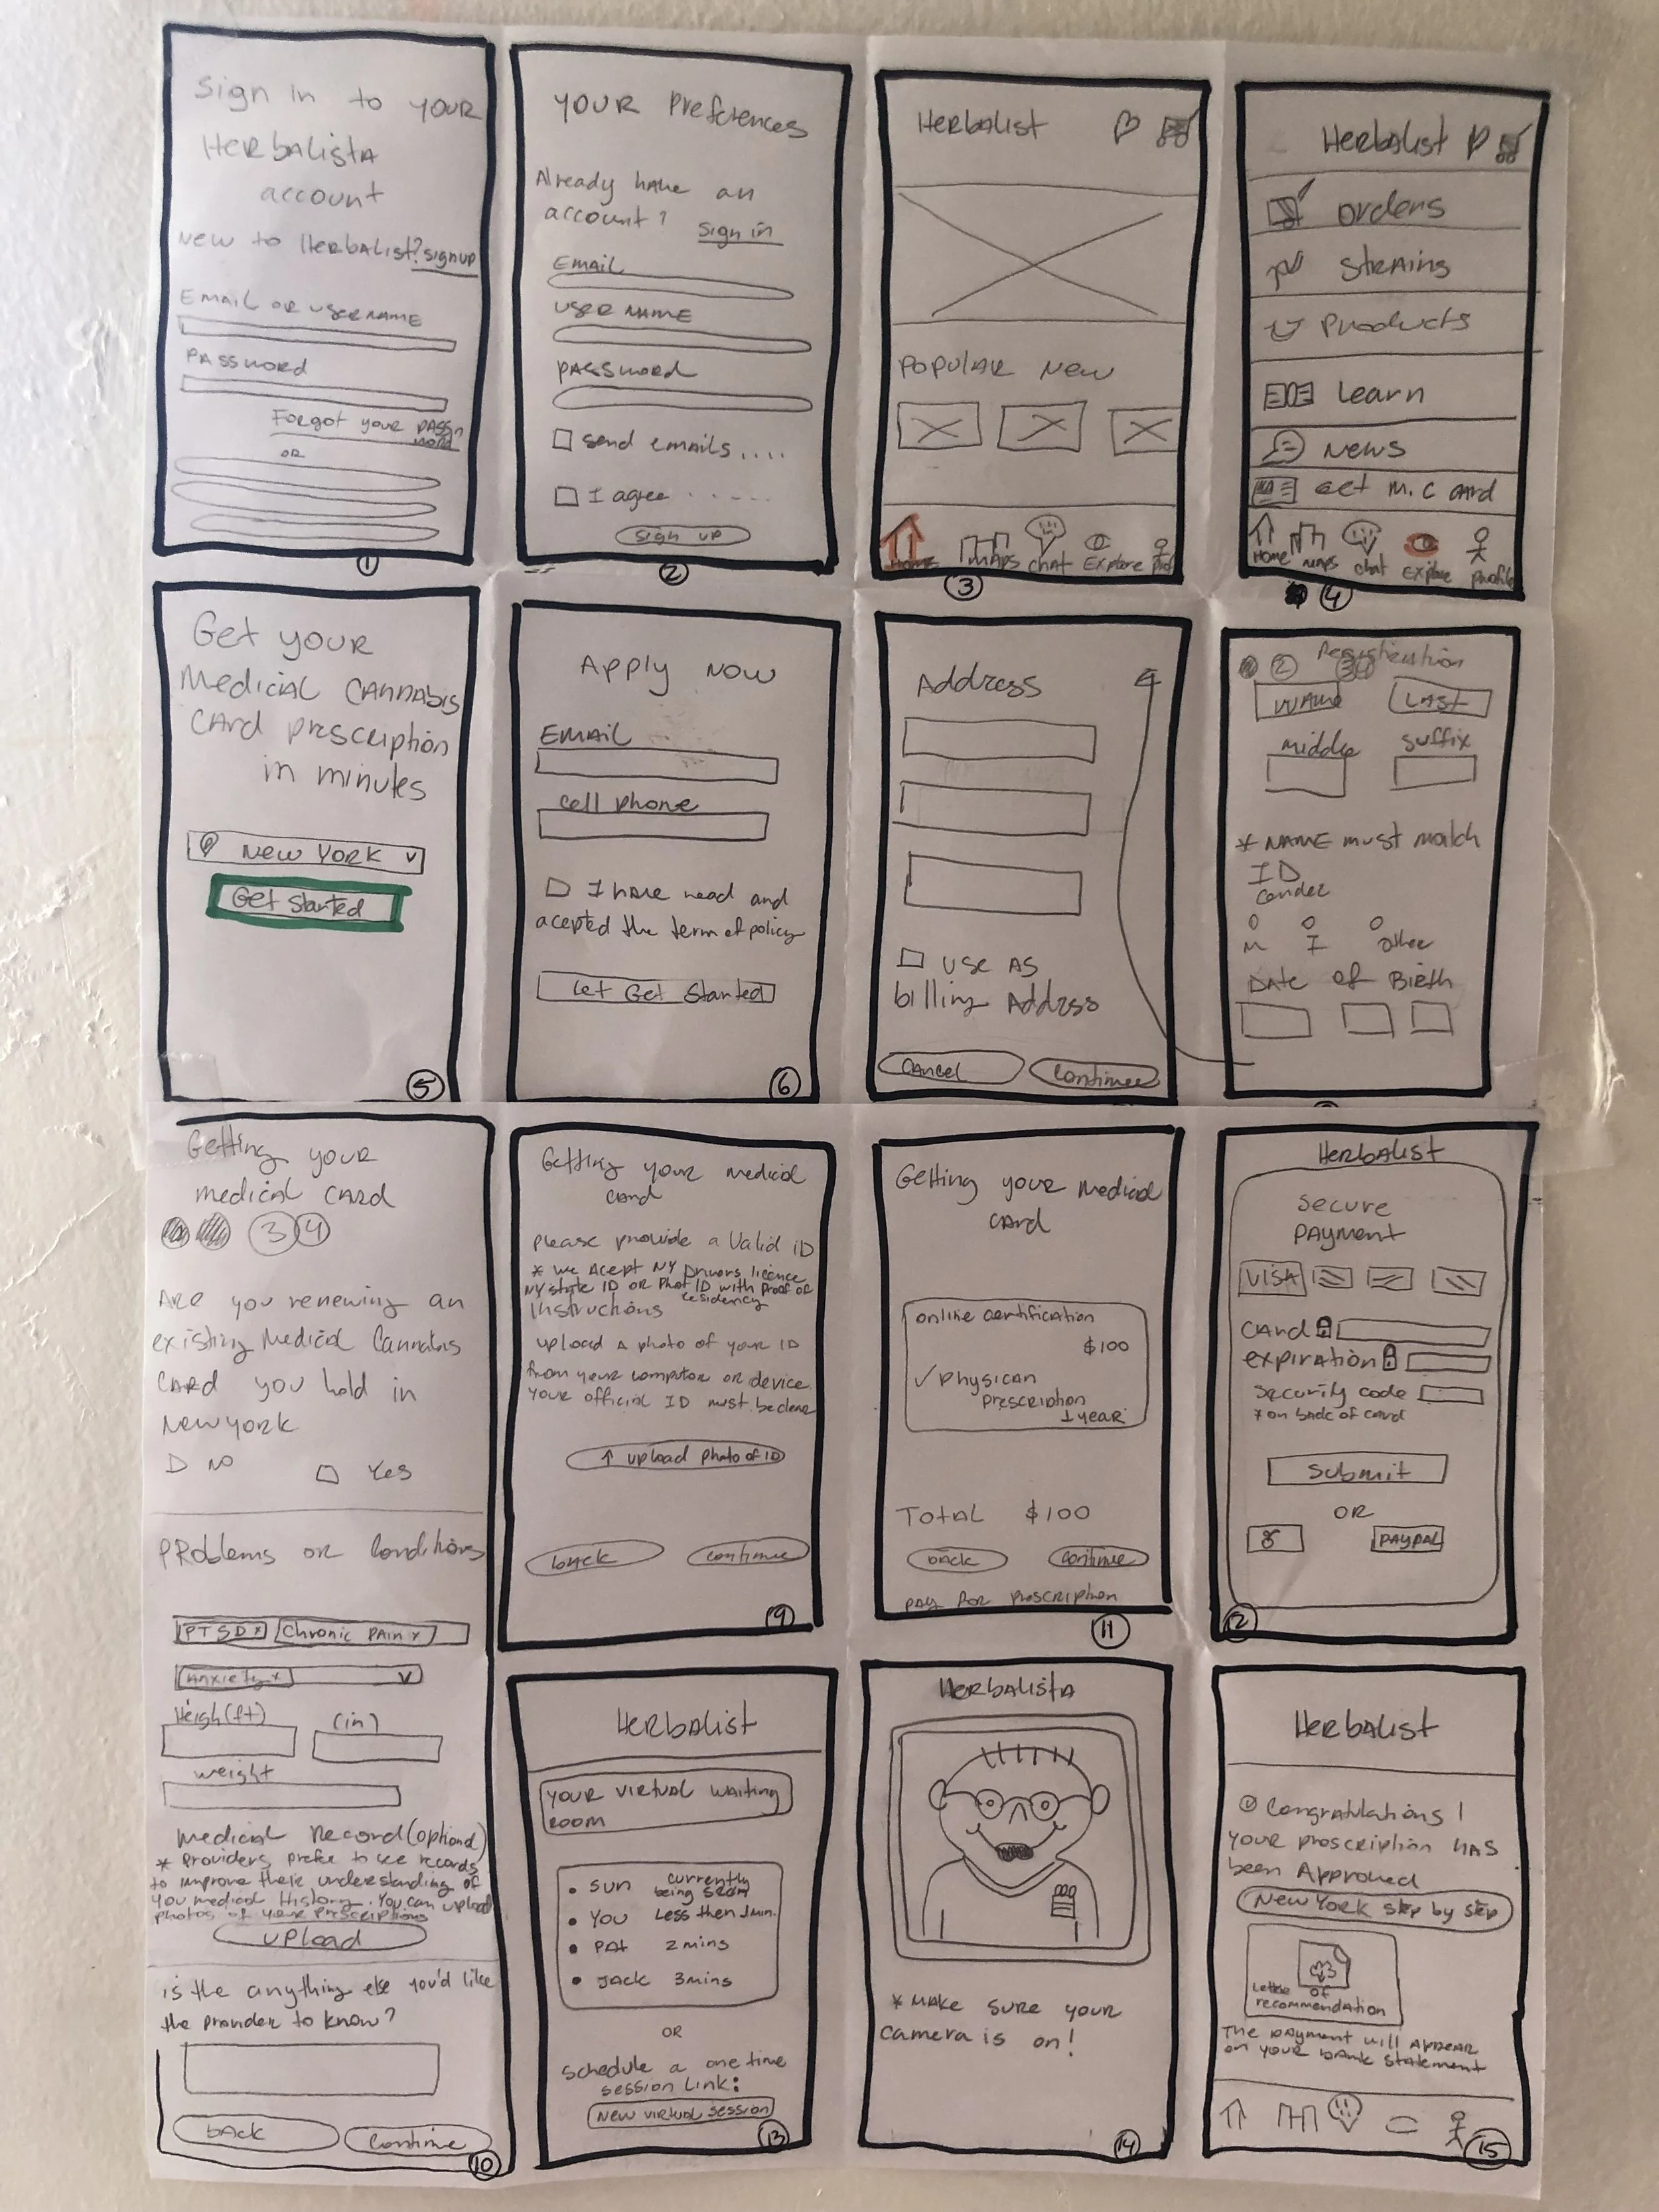 Sign in to your
Herbalista
account
New to Herbalist? signup
Email or username
Password
Forgot your pass
word
OR
①
Your Preferences
Already have an
account? Sign in
Email
User name
Password
Send emails....
I agree .....
Sign up
②
Herbalist
Popular New
Home Maps Chat Explore
③
Herbalist
Orders
Strains
Products
Learn
News
Get M.C card
Home Maps Chat Explore Profile
④
Get your
Medicial Cannabis
Card prescription
in minutes
New York
Get Started
⑤
Apply Now
Email
Cell phone
I have read and
acepted the term of policy
Let Get Started
⑥
Address
Use as
billing Address
Cancel Continue
Registration
2
Name Last
Middle Suffix
* Name must match
ID
Gender
M F Other
Date of Birth
Getting your
medical card
3 4
Are you renewing an
existing Medical Cannabis
Card you hold in
New york
No Yes
Problems or Conditions
PTSD x Chronic Pain x
Anxiety x
Heigh(ft) (in)
weight
Medical Record (optional)
* Providers prefer to see records
to improve their understanding of
you medical History. You can upload
photos of your prescriptions
upload
is the anything else you'd like
the provider to know?
back Continue
⑩
Getting your medical
card
Please provide a Valid ID
* We Acept NY Drivers licence
NY state ID or Phot ID with Proof of
residency
Instructions
upload a photo of your ID
from your computor or device.
Your official ID must be clear
↑ upload photo of ID
back continue
⑨
Getting your Medical
card
online certification
$100
✓ Physican
prescription
1 year
Total $100
back continue
pay for prescription
⑪
Herbalist
Secure
Payment
VISA
Card
expiration
Security code
* on back of card
Submit
OR
PAYPAL
⑫
Herbalist
Your virtual waiting
room
• Sun currently
being seen
• You Less then 1min.
• Pat 2 mins
• Jack 3mins
OR
Schedule a one time
session Link:
New virtual session
⑬
Herbalista
* Make sure your
camera is on!
⑭
Herbalist
Congratulations!
Your prescription has
been Approved
New York step by step
Letter of
recommendation
The payment will appear
on your bank statement
⑮